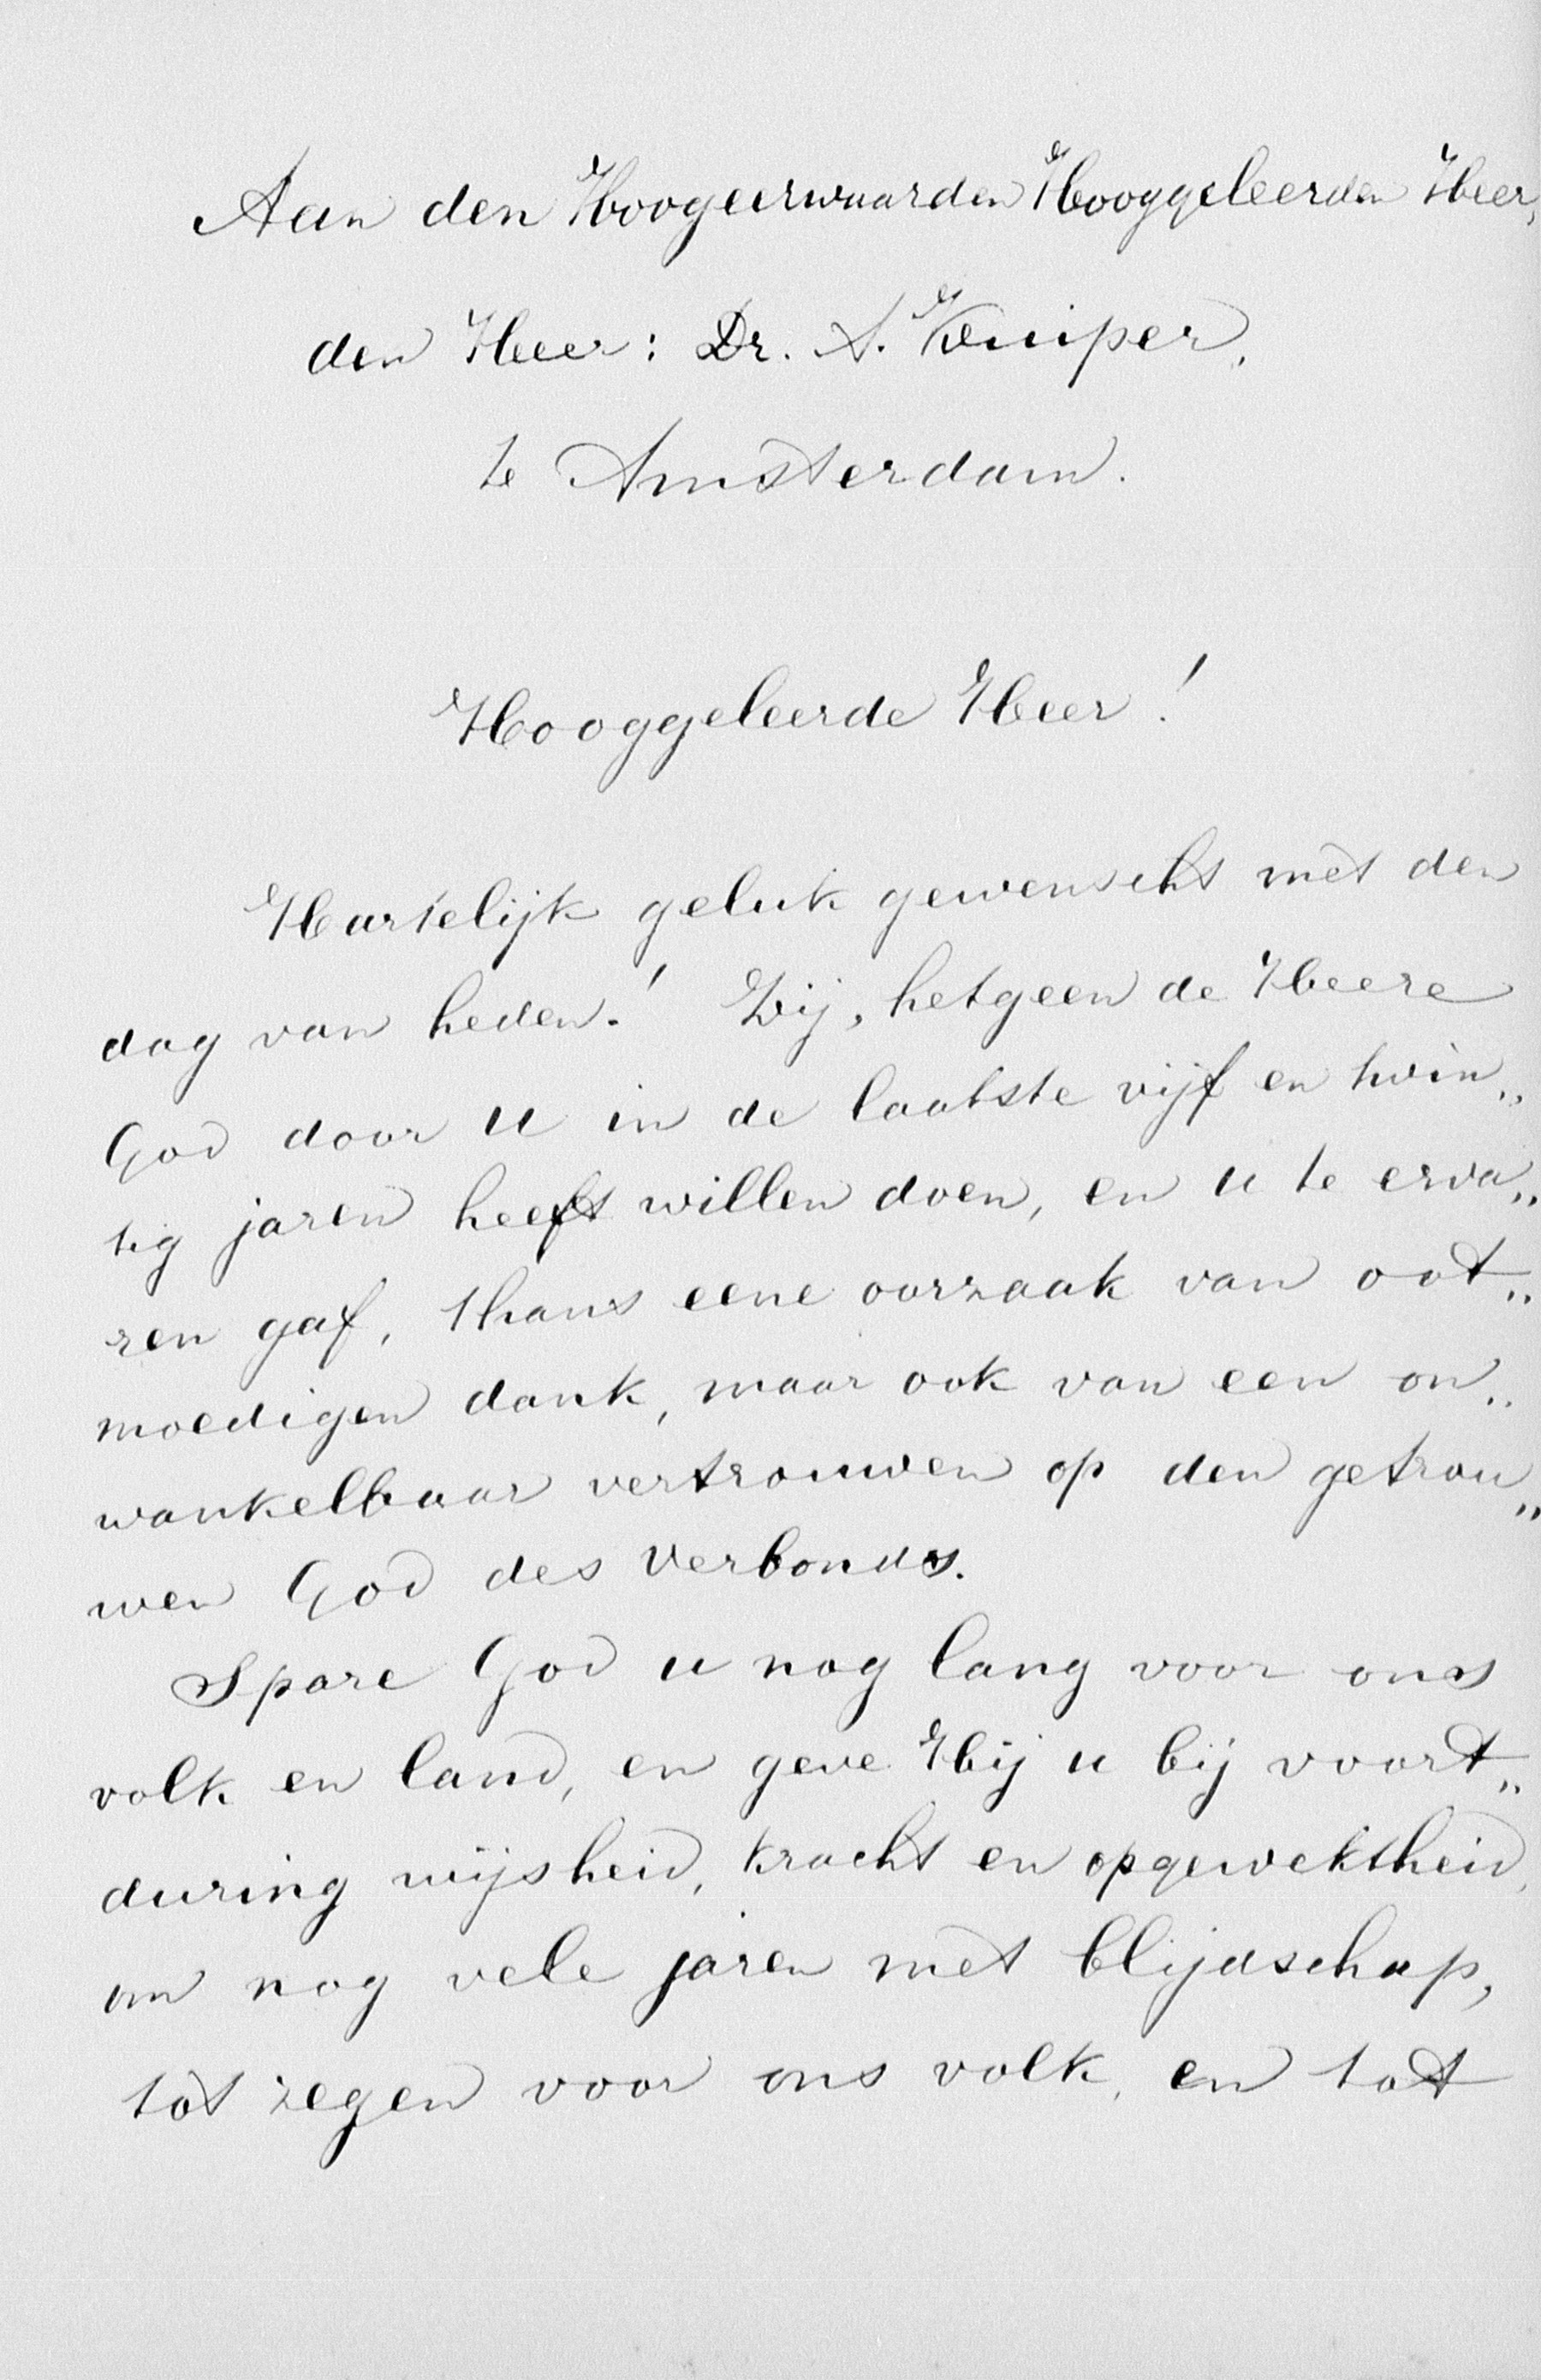 Aan den Hoogeerwaarden Hooggeleerden Heer,
den Heer: Dr. A. Kuiper,
te Amsterdam.
Hooggeleerde Heer!
Hartelijk geluk gewenscht met den
dag van heden! Zij, hetgeen de Heere
God door U in de laatste vijf en twin„
tig jaren heeft willen doen, en u te erva„
ren gaf, thans eene oorzaak van oot„
moedigen dank, maar ook van een on„
wankelbaar vertrouwen op den getrou„
wen God des Verbonds.
Spare God u nog lang voor ons
volk en land, en geve Hij u bij voort„
during wijsheid, kracht en opgewektheid,
om nog vele jaren met blijdschap,
tot zegen voor ons volk, en tot